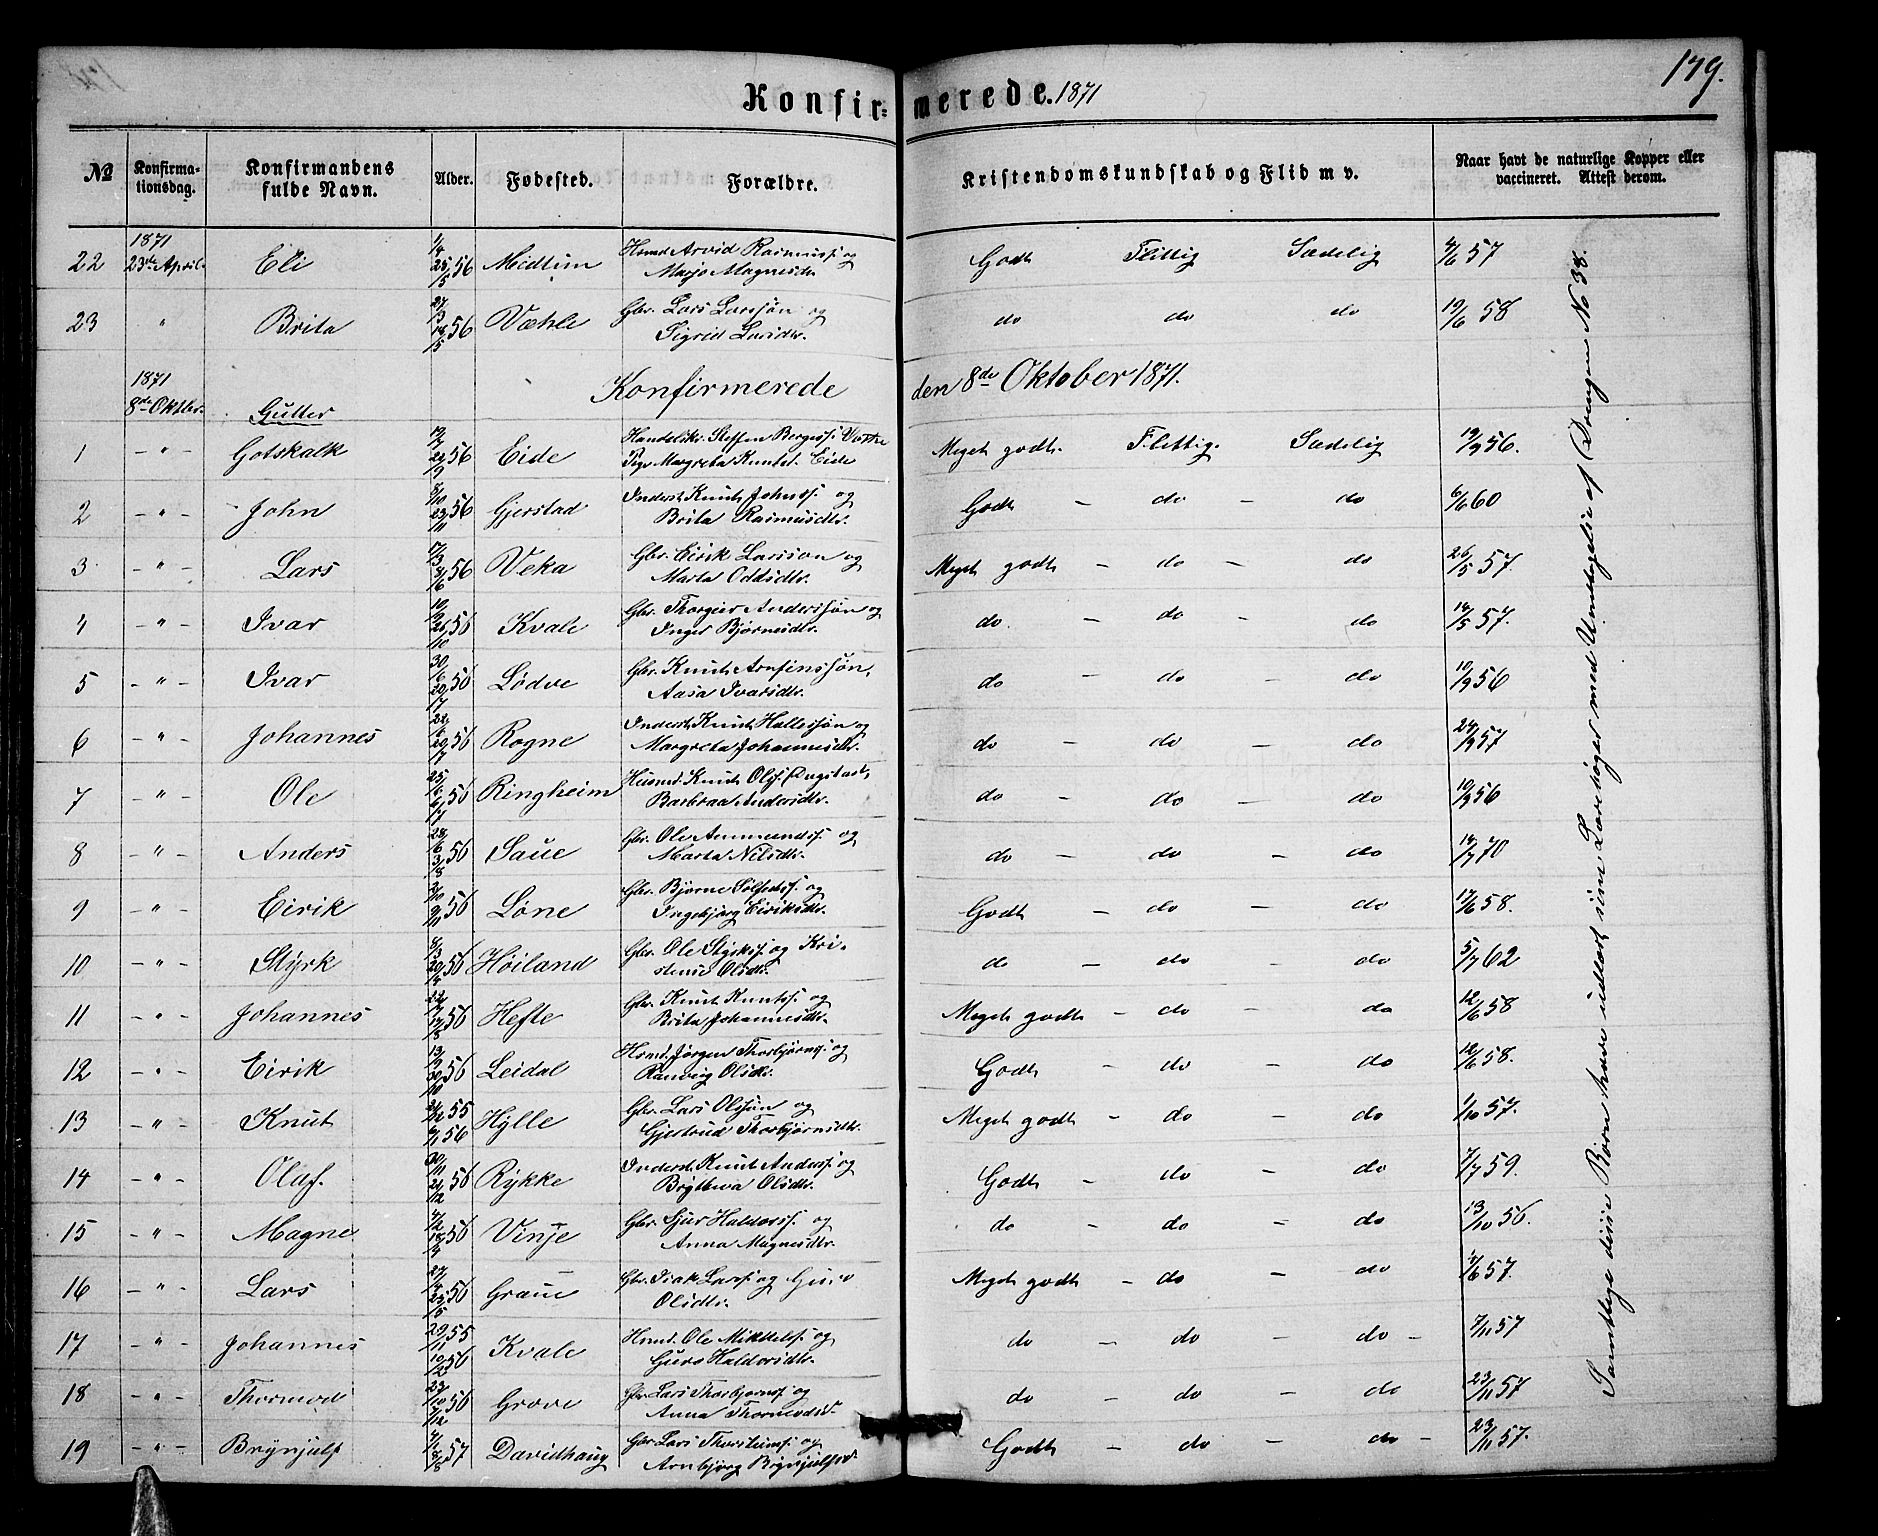 179.
Konfirmerede. 1871
№ Konfirmationsdag. Konfirmandens fulde Navn. Alder. Fødested. Forældre. Kristendomskundskab og Flid m v. Naar havt de naturlige Kopper eller vaccineret. Attest derom.
22 1871 23de April Eli 1/4 25/5 56 Midtun Husmd Arvid Rasmuss. og Marjo Magnesdtr Godt Flittig Sædelig 4/6 57
23 " Brita 27/3 18/5 56 Væhle Gbr. Lars Larssøn og Sigrid Larsdtr. do do do 19/6 58
1871 8de Oktbr. Konfirmerede den 8de Oktober 1871.
Gutter
1 - " - Gotskalk 13/7 56 Eide Handelskr. Steffen Bergess. Pige Margreta Knutsd. Eide Meget godt. Flittig. Sædelig 19/9 56.
2 - " - John 8/10 23/11 56 Gjerstad Inderst. Knut Johnss. og Brita Rasmusdtr. Godt - do - do 6/6 60
3 - " - Lars 17/3 8/6 56 Veka Gbr. Eirik Larsson og Marta Oddsdtr. Meget godt - do - do 26/5 57.
4 - " - Ivar 10/9 26/10 56 Kvale Gbr. Thorgier Anderssøn og Inger Bjørnesdtr. do. - do - do 14/5 57.
5 - " - Ivar 30/6 20/7 56 Lødve Gbr. Knut Arnfinssøn, Aasa Ivarsdtr. do - do - do 10/9 56
6 - " - Johannes 22/6 20/7 56 Rogne Inderst. Knut Hallessøn og Margreta Johannesdtr. do - do - do 24/9 57
7 - " - Ole 25/6 6/7 56 Ringheim Husmd. Knut Olss. Barbraa Andersdtr. do - do - do 10/9 56
8 - " - Anders 28/6 3/8 56 Saue Gbr. Ole Ammundss. og Marta Nilsdtr. do - do - do 14/7 70
9 - " - Eirik 3/10 9/11 56 Løne Gbr. Bjørne Sølfestss. og Ingebjørg Eiriksdtr. Godt - do - do 17/6 58.
10 - " - Styrk 8/3 20/4 56 Høiland Gbr. Ole Styrkss. og Kristense Olsdtr. do - do - do 5/7 62
11 - " - Johannes 22/7 17/8 56 Hefte Gbr. Knut Knutss. og Brita Johannesdtr. Meget godt - do - do 12/6 58
12 - " - Eirik 13/9 30/10 56 Leidal Hsmd. Jørgen Thorbjørns. og Ranveig Olsdtr. Godt - do - do 12/6 58.
13 - " - Knut 21/12 55 6/1 56 Hylle Gbr. Lars Olssøn og Gjertrud Thorbjørnsdtr. Meget godt - do - do 1/10 57.
14 - " - Olaf. 30/11 21/12 56 Rykke Inderst. Knut Anderss. og Brytteva Olsdtr. Godt - do - do 7/7 59.
15 - " - Magne 4/2 18/4 56 Vinje Gbr. Sjur Haldorss. og Anna Magnesdtr. do - do - do 13/10 56.
16 - " - Lars 27/4 25/5 56 Graue Gbr. Isak Larss. og Guro Olsdtr. Meget godt - do - do 4/6 57.
17 - " - Johannes 29/11 55 10/2 56 Kvale Hsmd. Ole Mikkels. og Guro Haldorsdtr. do - do - do - 7/11 57
18 - " - Thormod 23/10 7/12 56 Grove Gbr. Lars Thorbjørnss. og Anna Thormodsd. do - do - do 23/11 57
19 - " - Brynjulf 4/7 8/8 57 Davidhaug Gbr. Lars Thorstenss. og Arnbjørg Brynjulfsd. Godt - do - do - 23/11 57.
Samtlige disse Børn have udlært sine Lærebøger med Undtagelse af Drengen No 38.